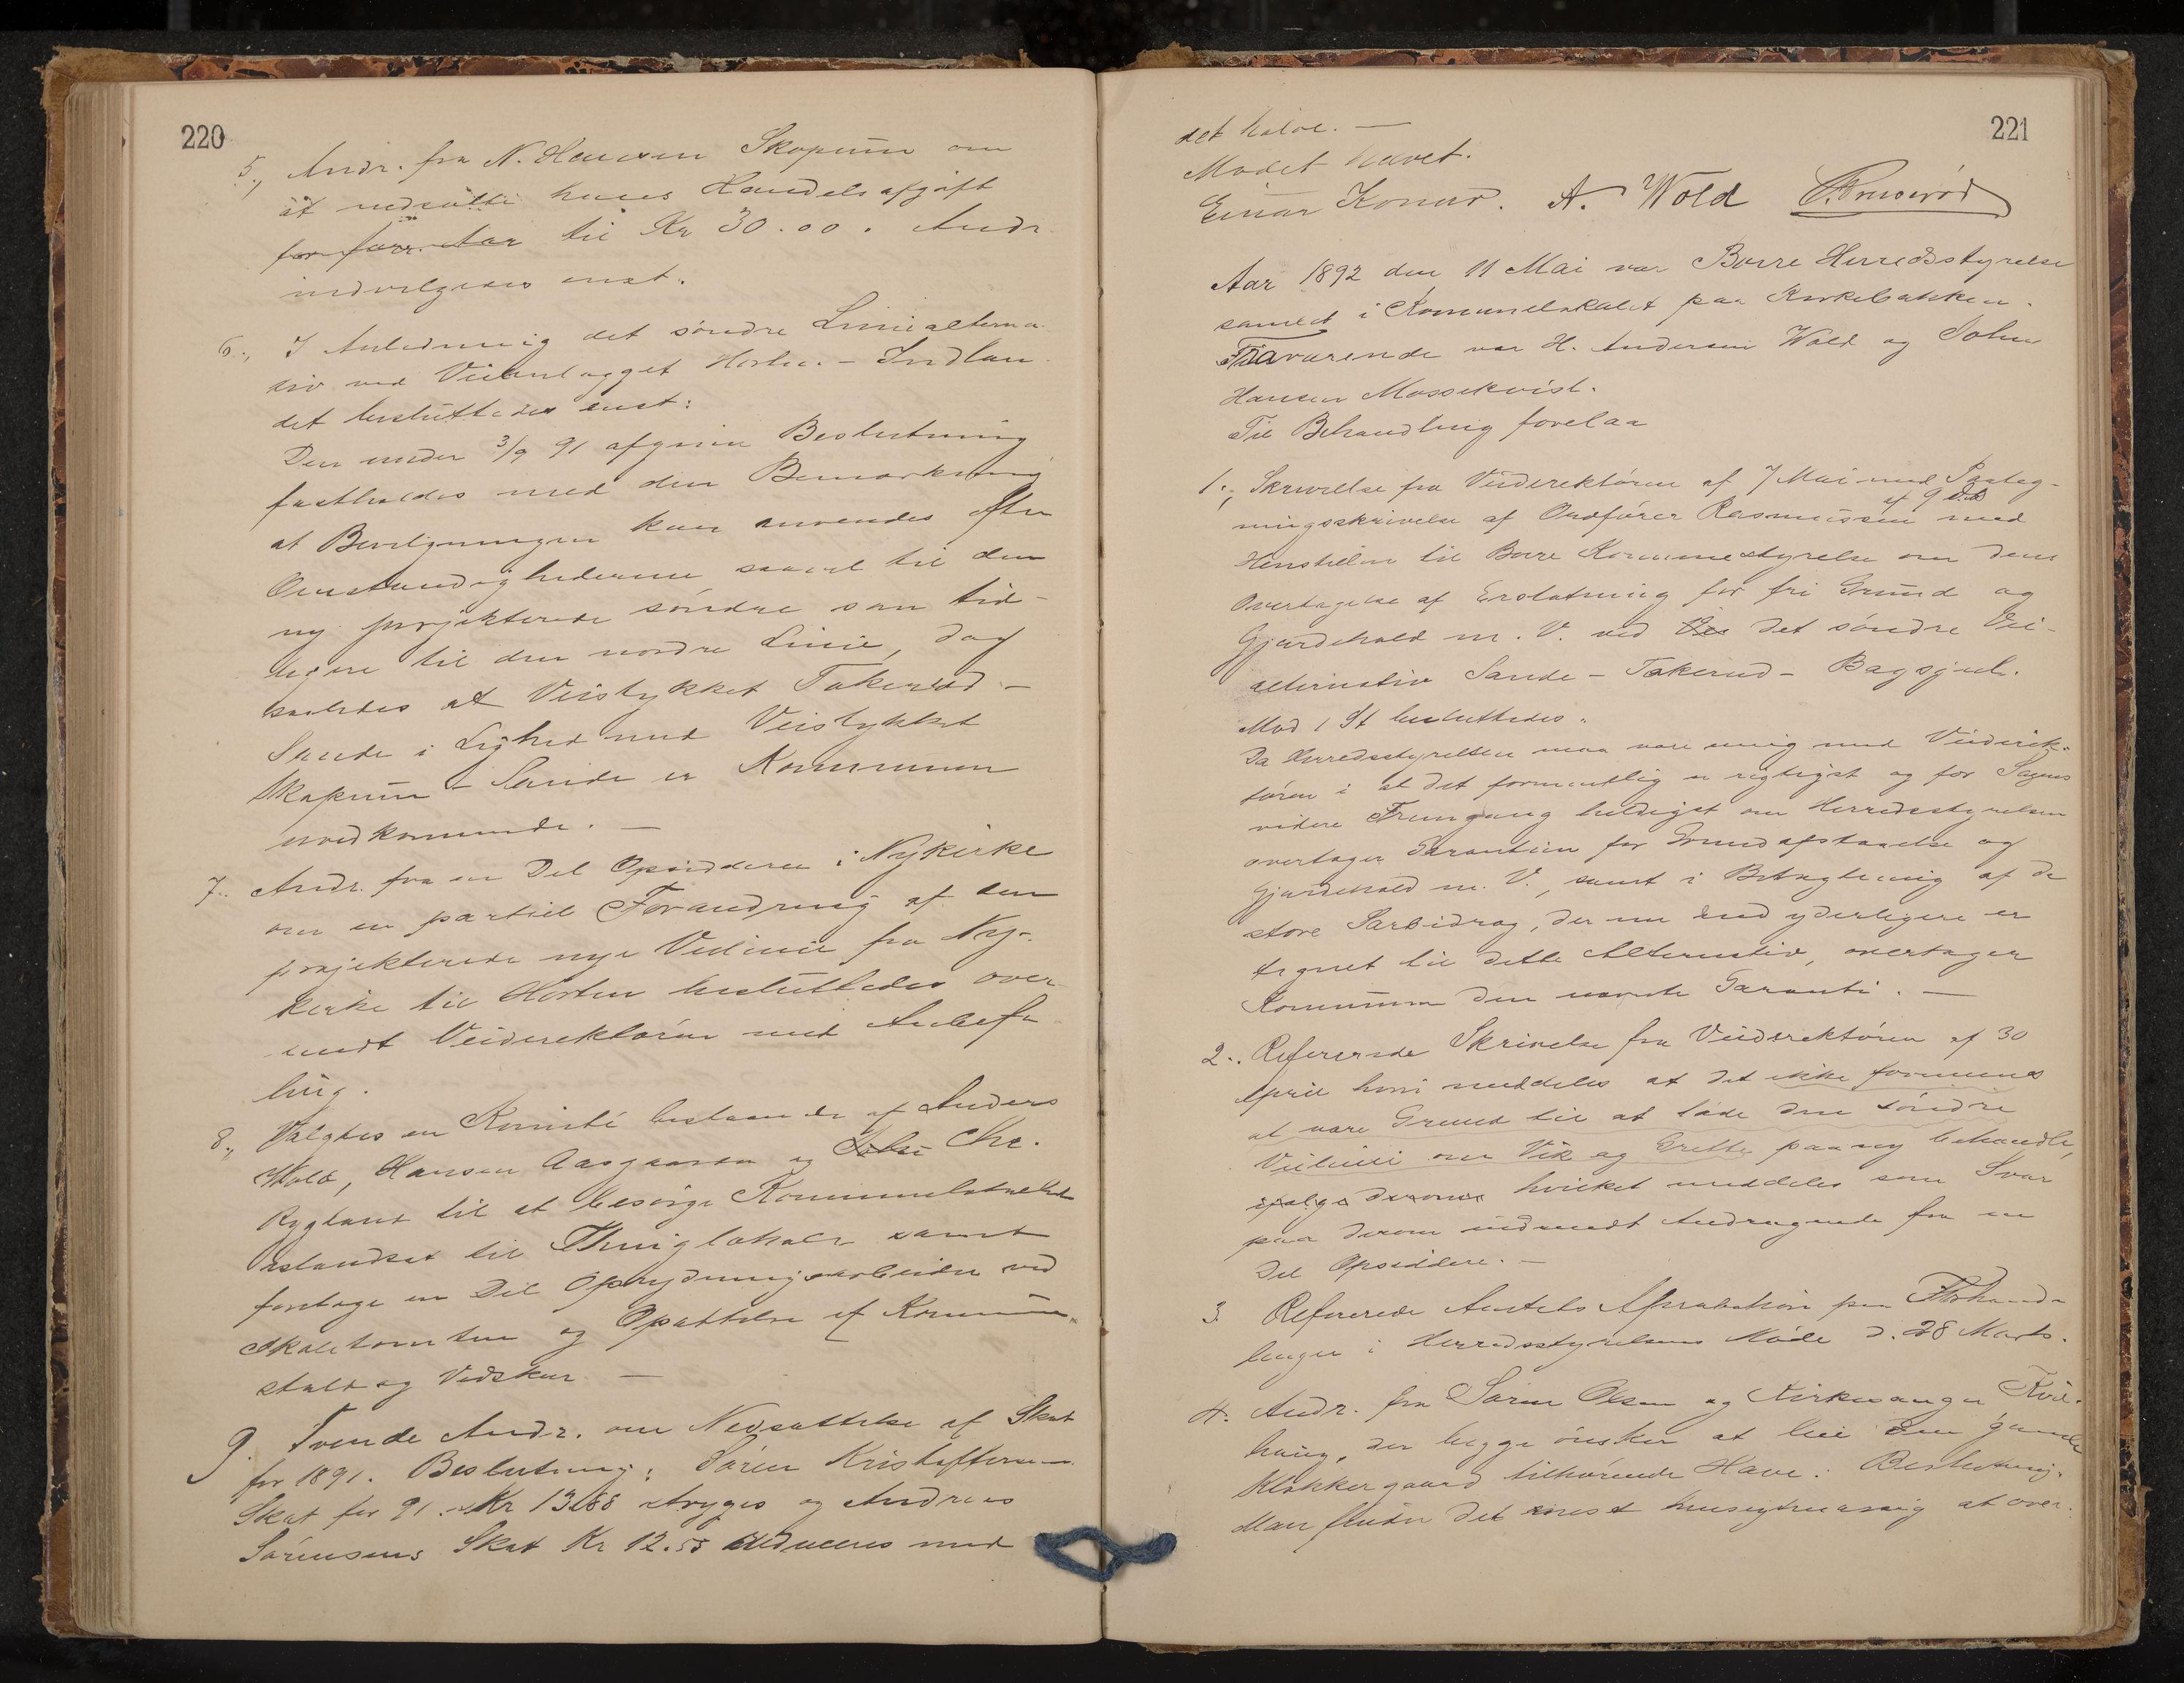 220
5., Andr. fra N. Hansen Skopum om
at nedsætte hans Handelsafgift
for forr. Aar til Kr 30.00. Andr
indvilgedes enst.
6., I Anledning det søndre Liniealterna-
tiv ved Veianlægget Horten - Indlan
det besluttedes enst:
Den under 3/9 91 afgivne Beslutning
fastholdes med den Bemærkning
at Bevilgningen kan anvendes efter
Omstændighederne saavel til den
ny projekterede søndre som tid-
ligere til den nordre Linie, dog
saaledes at Veistykket Takerød -
Sande i Lighed med Veistykket
Skopum - Sande er Kommunen
uvedkommende. -
7.. Andr. fra en Del Opsiddere i Nykirke
om en partiel Forandring af den
projekterede nye Veilinie fra Ny-
kirke til Horten besluttedes over-
sendt Veidirektøren med Anbefa
ling.
8., Valgtes en Komité bestaaende af Anders
Wold, Hansen Aasgaarden og Johs Chr.
Rygtant til at besørge Kommunelokalet
istandsat til Thinglokale samt
foretage en Del Oprydningsarbeider ved
Skoletomten og Opsættelse af Kommune
stald og Vedskur -
9. Tvende Andr. om Nedsættelse af Skat
for 1891. Beslutning: Søren Kristoffersens
Skat for 91. Kr 13.68 stryges og Andreas
Sørensens Skat Kr 12.55 reduceres med
221
det halve. -
Mødet hævet.
Einar Konow. A. Wold
Aar 1892 den 11 Mai var Borre Herredsstyrelse
samlet i Kommunelokalet paa Kirkebakken.
Fraværende var H. Andersen Wold og John
Hansen Massekvist.
Til Behandling forelaa
1., Skrivelse fra Veidirektøren af 7 Mai med Paateg-
ningsskrivelse af Ordfører Rasmussen af 9 ds med
Henstillen til Borre Kommunestyrelse om dens
Overtagelse af Erstatning for fri Grund og
Gjærdehold m. V. ved det søndre Vei-
alternativ Sande - Takerud - Bagsjul.
Mod 1 St besluttedes:
Da Herredsstyrelsen maa være enig med Veidirek-
tøren i at det formentlig er rigtigst og for Sagens
videre Fremgang heldigst om Herredsstyrelsen
overtager Garantien for Grundafstaaelse og
Gjærdehold m. V., samt i Betragtning af de
store Særbidrag, der nu end yderligere er
tegnet til dette Alternativ, overtager
Kommunen den nævnte Garanti. -
2.. Refererede Skrivelse fra Veidirektøren af 30
April hvori meddeles at det ikke formenes
at være Grund til at lade den søndre
Veilinie over Vik og Grette paany behandle,
hvilket meddeles som Svar
paa derom indsendt Andragende fra en
Del Opsiddere. -
3. Refererede Amtets Approbation paa Forhand-
linger i Herredsstyrelsens Møde d. 28 Marts.
4. Andr. fra Søren Olsen og Kirkesanger Kvil-
haug, der begge ønsker at leie den gamle
Klokkergaard tilhørende Have. Beslutning.
Man finder det mest hensigtmæssig at over-